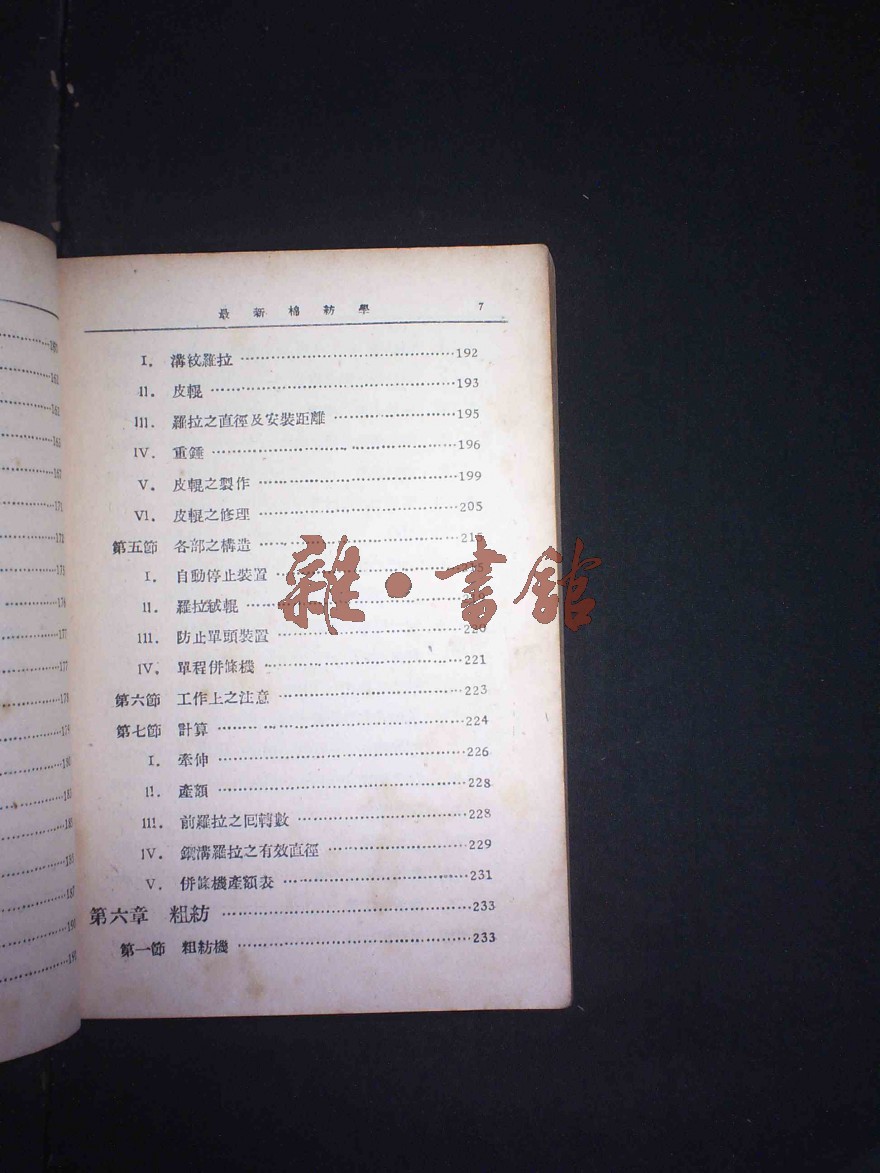 最新棉紡學 7
I. 溝紋羅拉 192
II. 皮輥 193
III. 羅拉之直徑及安裝距離 195
IV. 重錘 196
V. 皮輥之製作 199
VI. 皮輥之修理 205
第五節 各部之構造 215
I. 自動停止裝置
II. 羅拉絨輥
III. 防止單頭裝置 220
IV. 單程併條機 221
第六節 工作上之注意 223
第七節 計算 224
I. 牽伸 226
II. 產額 228
III. 前羅拉之回轉數 228
IV. 鋼溝羅拉之有效直徑 229
V. 併條機產額表 231
第六章 粗紡 233
第一節 粗紡機 233
雜·書館
161
161
167
171
172
173
176
177
177
178
179
180
187